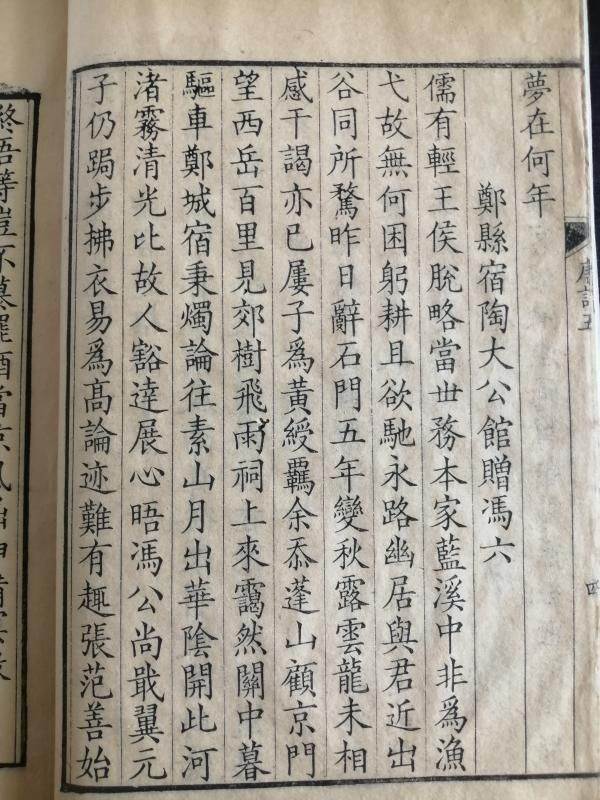 夢在何年
鄭縣宿陶大公館贈馮六
儒有輕王侯脫略當世務本家藍溪中非爲漁
弋故無何困躬耕且欲馳永路幽居與君近出
谷同所騖昨日辭石門五年變秋露雲龍未相
感干謁亦已屢子爲黃綬羈余忝蓬山顧京門
望西岳百里見郊樹飛雨祠上來靄然關中暮
驅車鄭城宿秉燭論往素山月出華陰開此河
渚霧清光比故人豁達展心晤馮公尚戢翼元
子仍跼步拂衣易爲髙論迹難有趣張范善始
終吾等豈不慕罷酒當